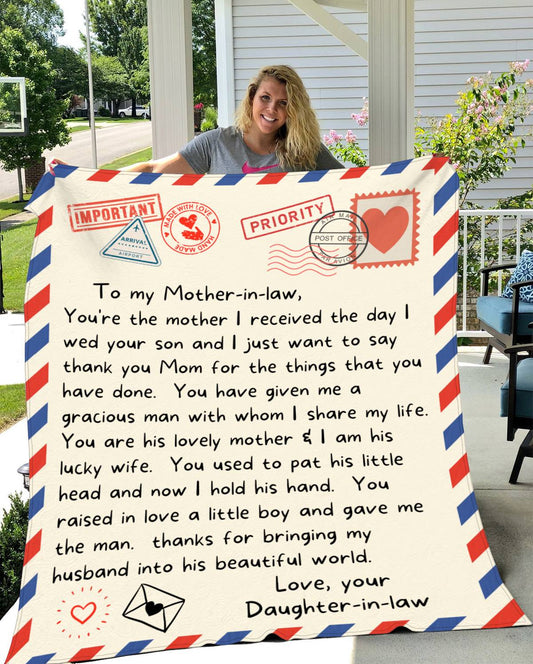 IMPORTANT
ARRIVAL
AIRPORT
MADE WITH LOVE
HAND MADE
PRIORITY
POST OFFICE
To my Mother-in-law,
You're the mother I received the day I
wed your son and I just want to say
thank you Mom for the things that you
have done. You have given me a
gracious man with whom I share my life.
You are his lovely mother & I am his
lucky wife. You used to pat his little
head and now I hold his hand. You
raised in love a little boy and gave me
the man. thanks for bringing my
husband into his beautiful world.
Love, your
Daughter-in-law